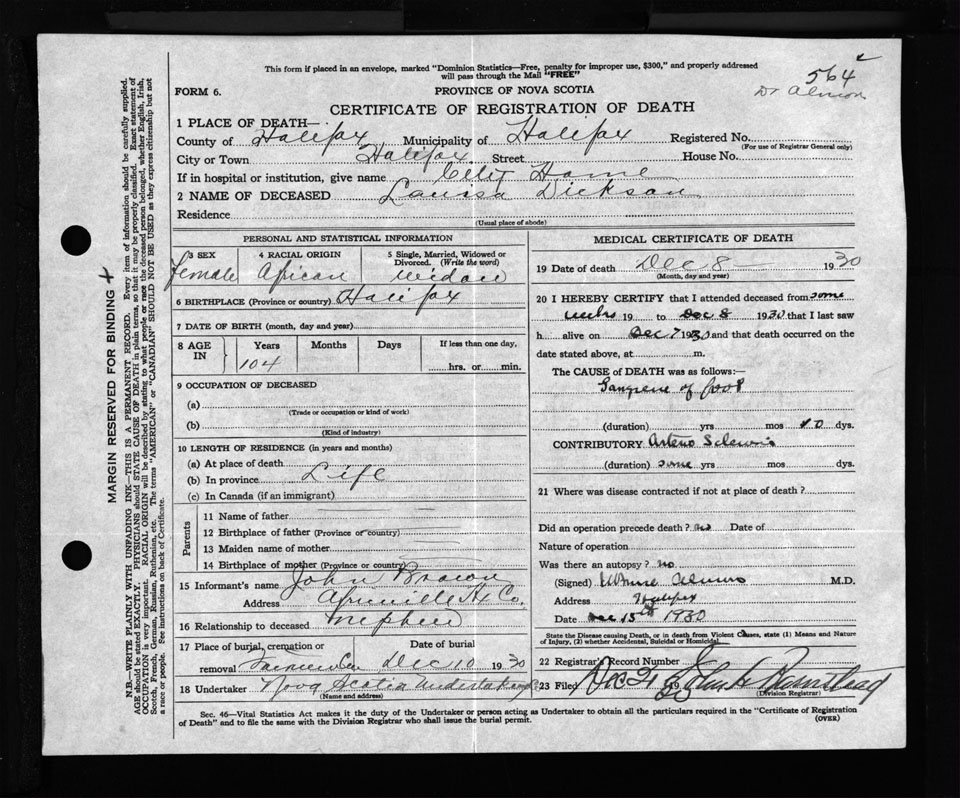 This form if placed in an envelope, marked "Dominion Statistics—Free, penalty for improper use, $300," and properly addressed
will pass through the Mail "FREE"
564
FORM 6.
PROVINCE OF NOVA SCOTIA
Dr
CERTIFICATE OF REGISTRATION OF DEATH
1 PLACE OF DEATH—
County of Halifax Municipality of Halifax Registered No.
(For use of Registrar General only)
City or Town Halifax Street House No.
If in hospital or institution, give name City Home
2 NAME OF DECEASED Louisa Dickson
Residence
(Usual place of abode)
PERSONAL AND STATISTICAL INFORMATION
3 SEX
Female
4 RACIAL ORIGIN
African
5 Single, Married, Widowed or
Divorced. (Write the word)
Widow
6 BIRTHPLACE (Province or country) Halifax
7 DATE OF BIRTH (month, day and year)
8 AGE
IN
Years Months Days If less than one day,
104
hrs. or min.
9 OCCUPATION OF DECEASED
(a)
(Trade or occupation or kind of work)
(b)
(Kind of industry)
10 LENGTH OF RESIDENCE (in years and months)
(a) At place of death
(b) In province Life
(c) In Canada (if an immigrant)
Parents
11 Name of father
12 Birthplace of father (Province or country)
13 Maiden name of mother
14 Birthplace of mother (Province or country)
15 Informant's name John Brown
Address Africville Hx Co.
16 Relationship to deceased nephew
17 Place of burial, cremation or
Date of burial
removal Fairview Cem Dec 10 1930
18 Undertaker Nova Scotia Undertaking
(Name and address)
MEDICAL CERTIFICATE OF DEATH
19 Date of death Dec 8 1930
(Month, day and year)
20 I HEREBY CERTIFY that I attended deceased from some
weeks 19 to Dec 8 1930 that I last saw
h alive on Dec 7 1930 and that death occurred on the
date stated above, at m.
The CAUSE of DEATH was as follows:—
Gangrene of foot
(duration) yrs mos 10 dys.
CONTRIBUTORY Arterio Sclerosis
(duration) some yrs mos dys.
21 Where was disease contracted if not at place of death?
Did an operation precede death? no Date of
Nature of operation
Was there an autopsy? no.
(Signed) M.D.
Address Halifax
Date Dec 15th 1930
State the Disease causing Death, or in death from Violent Causes, state (1) Means and Nature
of Injury, (2) whether Accidental, Suicidal or Homicidal.
22 Registrar's Record Number
23 Filed Dec 19 John
(Division Registrar)
Sec. 46—Vital Statistics Act makes it the duty of the Undertaker or person acting as Undertaker to obtain all the particulars required in the "Certificate of Registration
of Death" and to file the same with the Division Registrar who shall issue the burial permit.
(OVER)
MARGIN RESERVED FOR BINDING
N.B.—WRITE PLAINLY WITH UNFADING INK—THIS IS A PERMANENT RECORD. Every item of information should be carefully supplied.
AGE should be stated EXACTLY. PHYSICIANS should STATE CAUSE OF DEATH in plain terms, so that it may be properly classified. Exact statement of
OCCUPATION is very important. RACIAL ORIGIN will be described by stating to what people or race the deceased person belonged, whether English, Irish,
Scotch, French, German, Russian, Ruthenian, etc. The terms "AMERICAN" or "CANADIAN" SHOULD NOT BE USED as they express citizenship but not
a race or people. See instructions on back of Certificate.